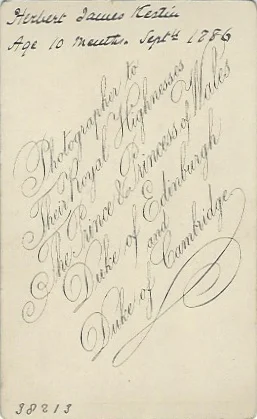 Herbert James Kestin
Age 10 Months. Septr 1886
Photographer to
Their Royal Highnesses
The Prince & Princess of Wales
Duke of Edinburgh
and
Duke of Cambridge
38213